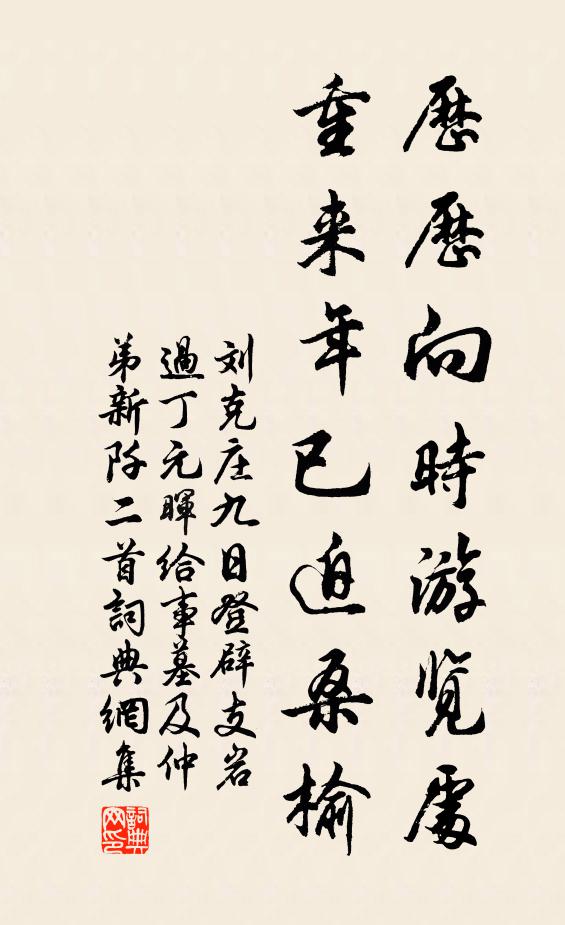 歷歷向時游览處
重来年已迫桑榆
刘克庄九日登辟支岩
過丁元暉给事墓及仲
弟新阡二首詞典網集
詞典网印